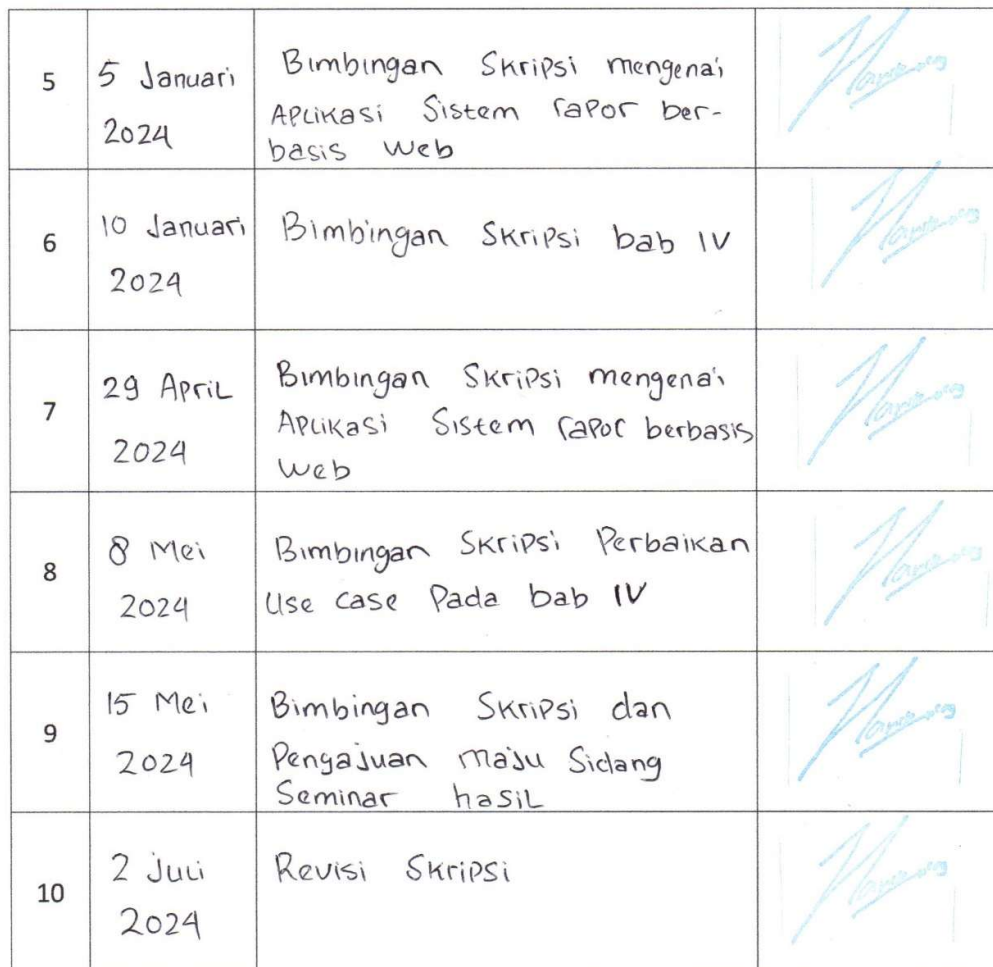 5
5 Januari
2024
Bimbingan Skripsi mengenai
Aplikasi Sistem rapor ber-
basis web
6
10 Januari
2024
Bimbingan Skripsi bab IV
7
29 April
2024
Bimbingan Skripsi mengenai
Aplikasi Sistem rapor berbasis
web
8
8 Mei
2024
Bimbingan Skripsi Perbaikan
Use case Pada bab IV
9
15 Mei
2024
Bimbingan Skripsi dan
Pengajuan maju Sidang
Seminar hasil
10
2 Juli
2024
Revisi Skripsi